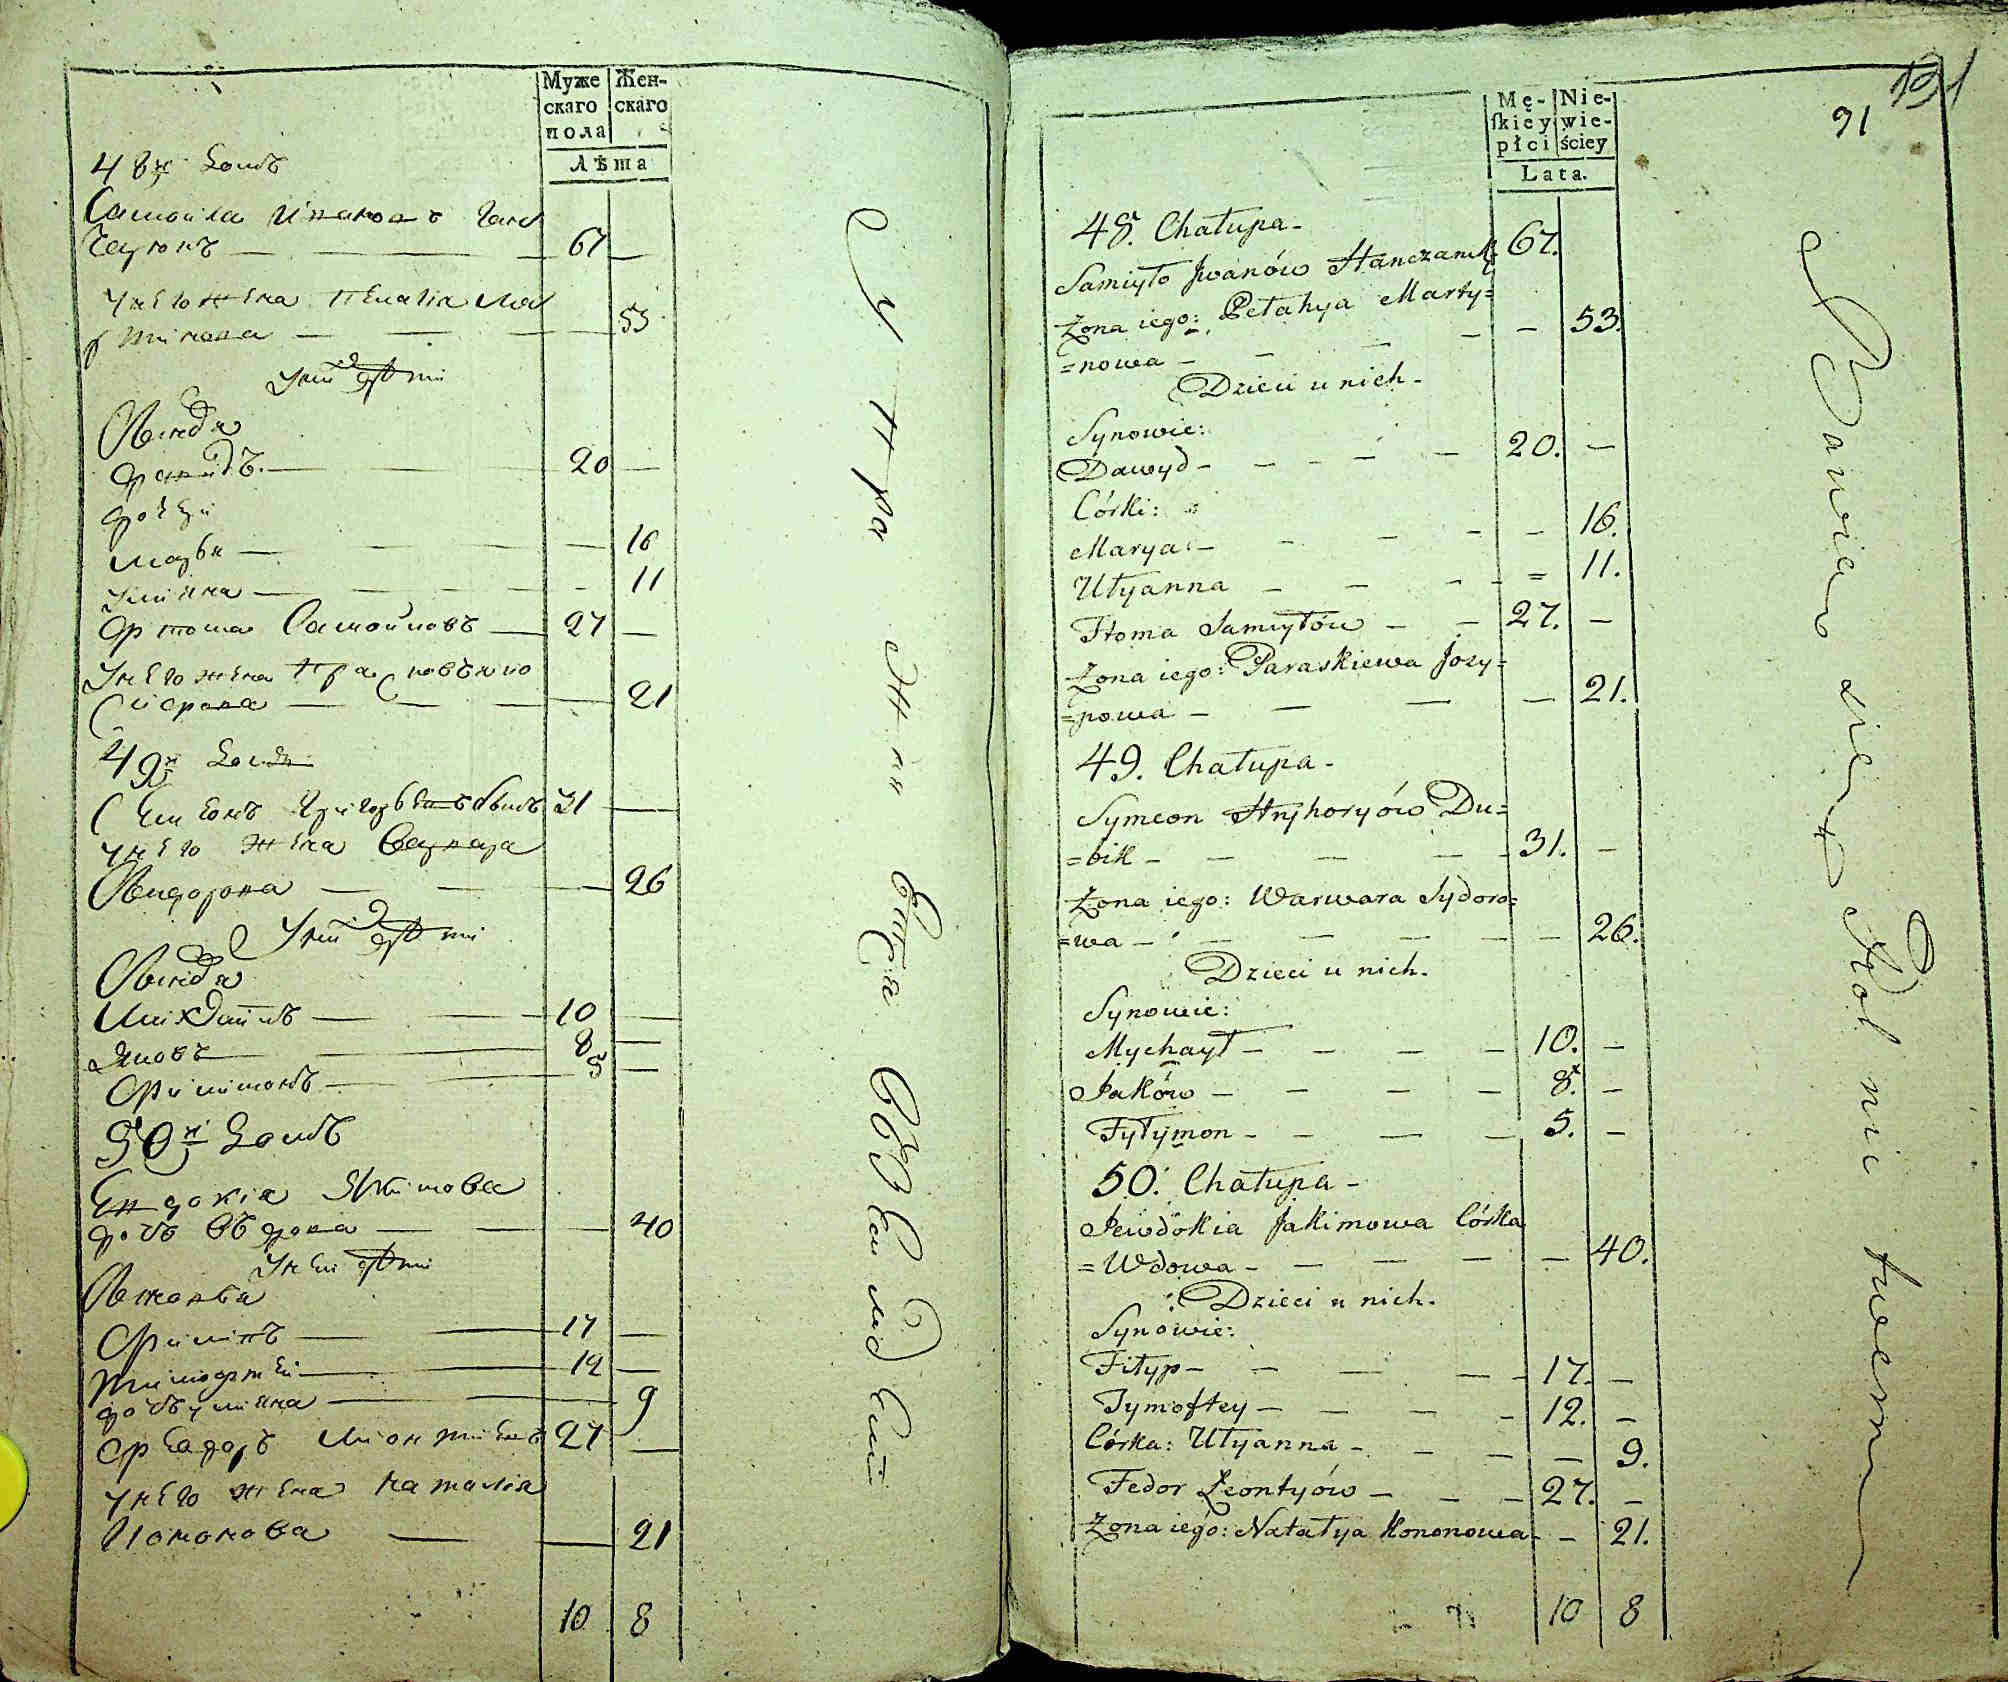 Муже Жен-
скаго скаго
пола
Лѣта
48й домъ
Самойла Ивановъ Ган
чаукъ — 67 —
у него жена Пелагія Ма
ртинова — 53
у них дѣти
Сыновя
Давидъ — 20 —
дочери
Марья — 16
Уліяна — 11
Фтома Самойловъ — 27 —
у него жена Прасковѣя Ио
сифова — 21
49й домъ
Семионъ Григорьевъ 31 —
у него жена Варвара
Сидорова — 26
у них дѣти
Сыновя
Михайлъ — 10 —
Яковъ — 8 —
Филимонъ — 5 —
50й домъ
Евдокія Якимова
дочь Вдова — 40
у ней дѣти
Сыновья
Филипъ — 17 —
Тимофтей — 12 —
дочь Уліяна — 9
Феодоръ Лионтиевъ 27 —
у него жена Наталія
Кононова — 21
10 8
131
91
Mę- Nie-
skiey wie-
płci ściey
Lata.
48. Chałupa -
Samiyło Jwanów Hanczaruk 67.
Żona iego: Pelahya Marty=
=nowa - - - - - 53.
Dzieci u nich.
Synowie:
Dawyd - - - - - 20. -
Córki:
Marya - - - - - 16.
Ulyanna - - - - = 11.
Ftoma Samiyłów - - 27. -
Żona iego: Paraskiewa Jozy=
=powa - - - - 21.
49. Chałupa -
Symeon Hryhoryów Du=
=bik - - - - - 31. -
Żona iego: Warwara Sydoro=
=wa - - - - - - 26.
Dzieci u nich.
Synowie:
Mychaył - - - - 10. -
Jaków - - - - - 8. -
Fyłymon - - - - 5. -
50. Chałupa -
Jewdokia Jakimowa Córka
=Wdowa - - - - - - 40.
: Dzieci u nich.
Synowie:
Fiłyp - - - - - 17. -
Tymoftey - - - - 12. -
Córka: Ulyanna - - - - 9.
Fedor Leontyów - - - 27. -
Żona iego: Natalya Kononowa - - 21.
10 8